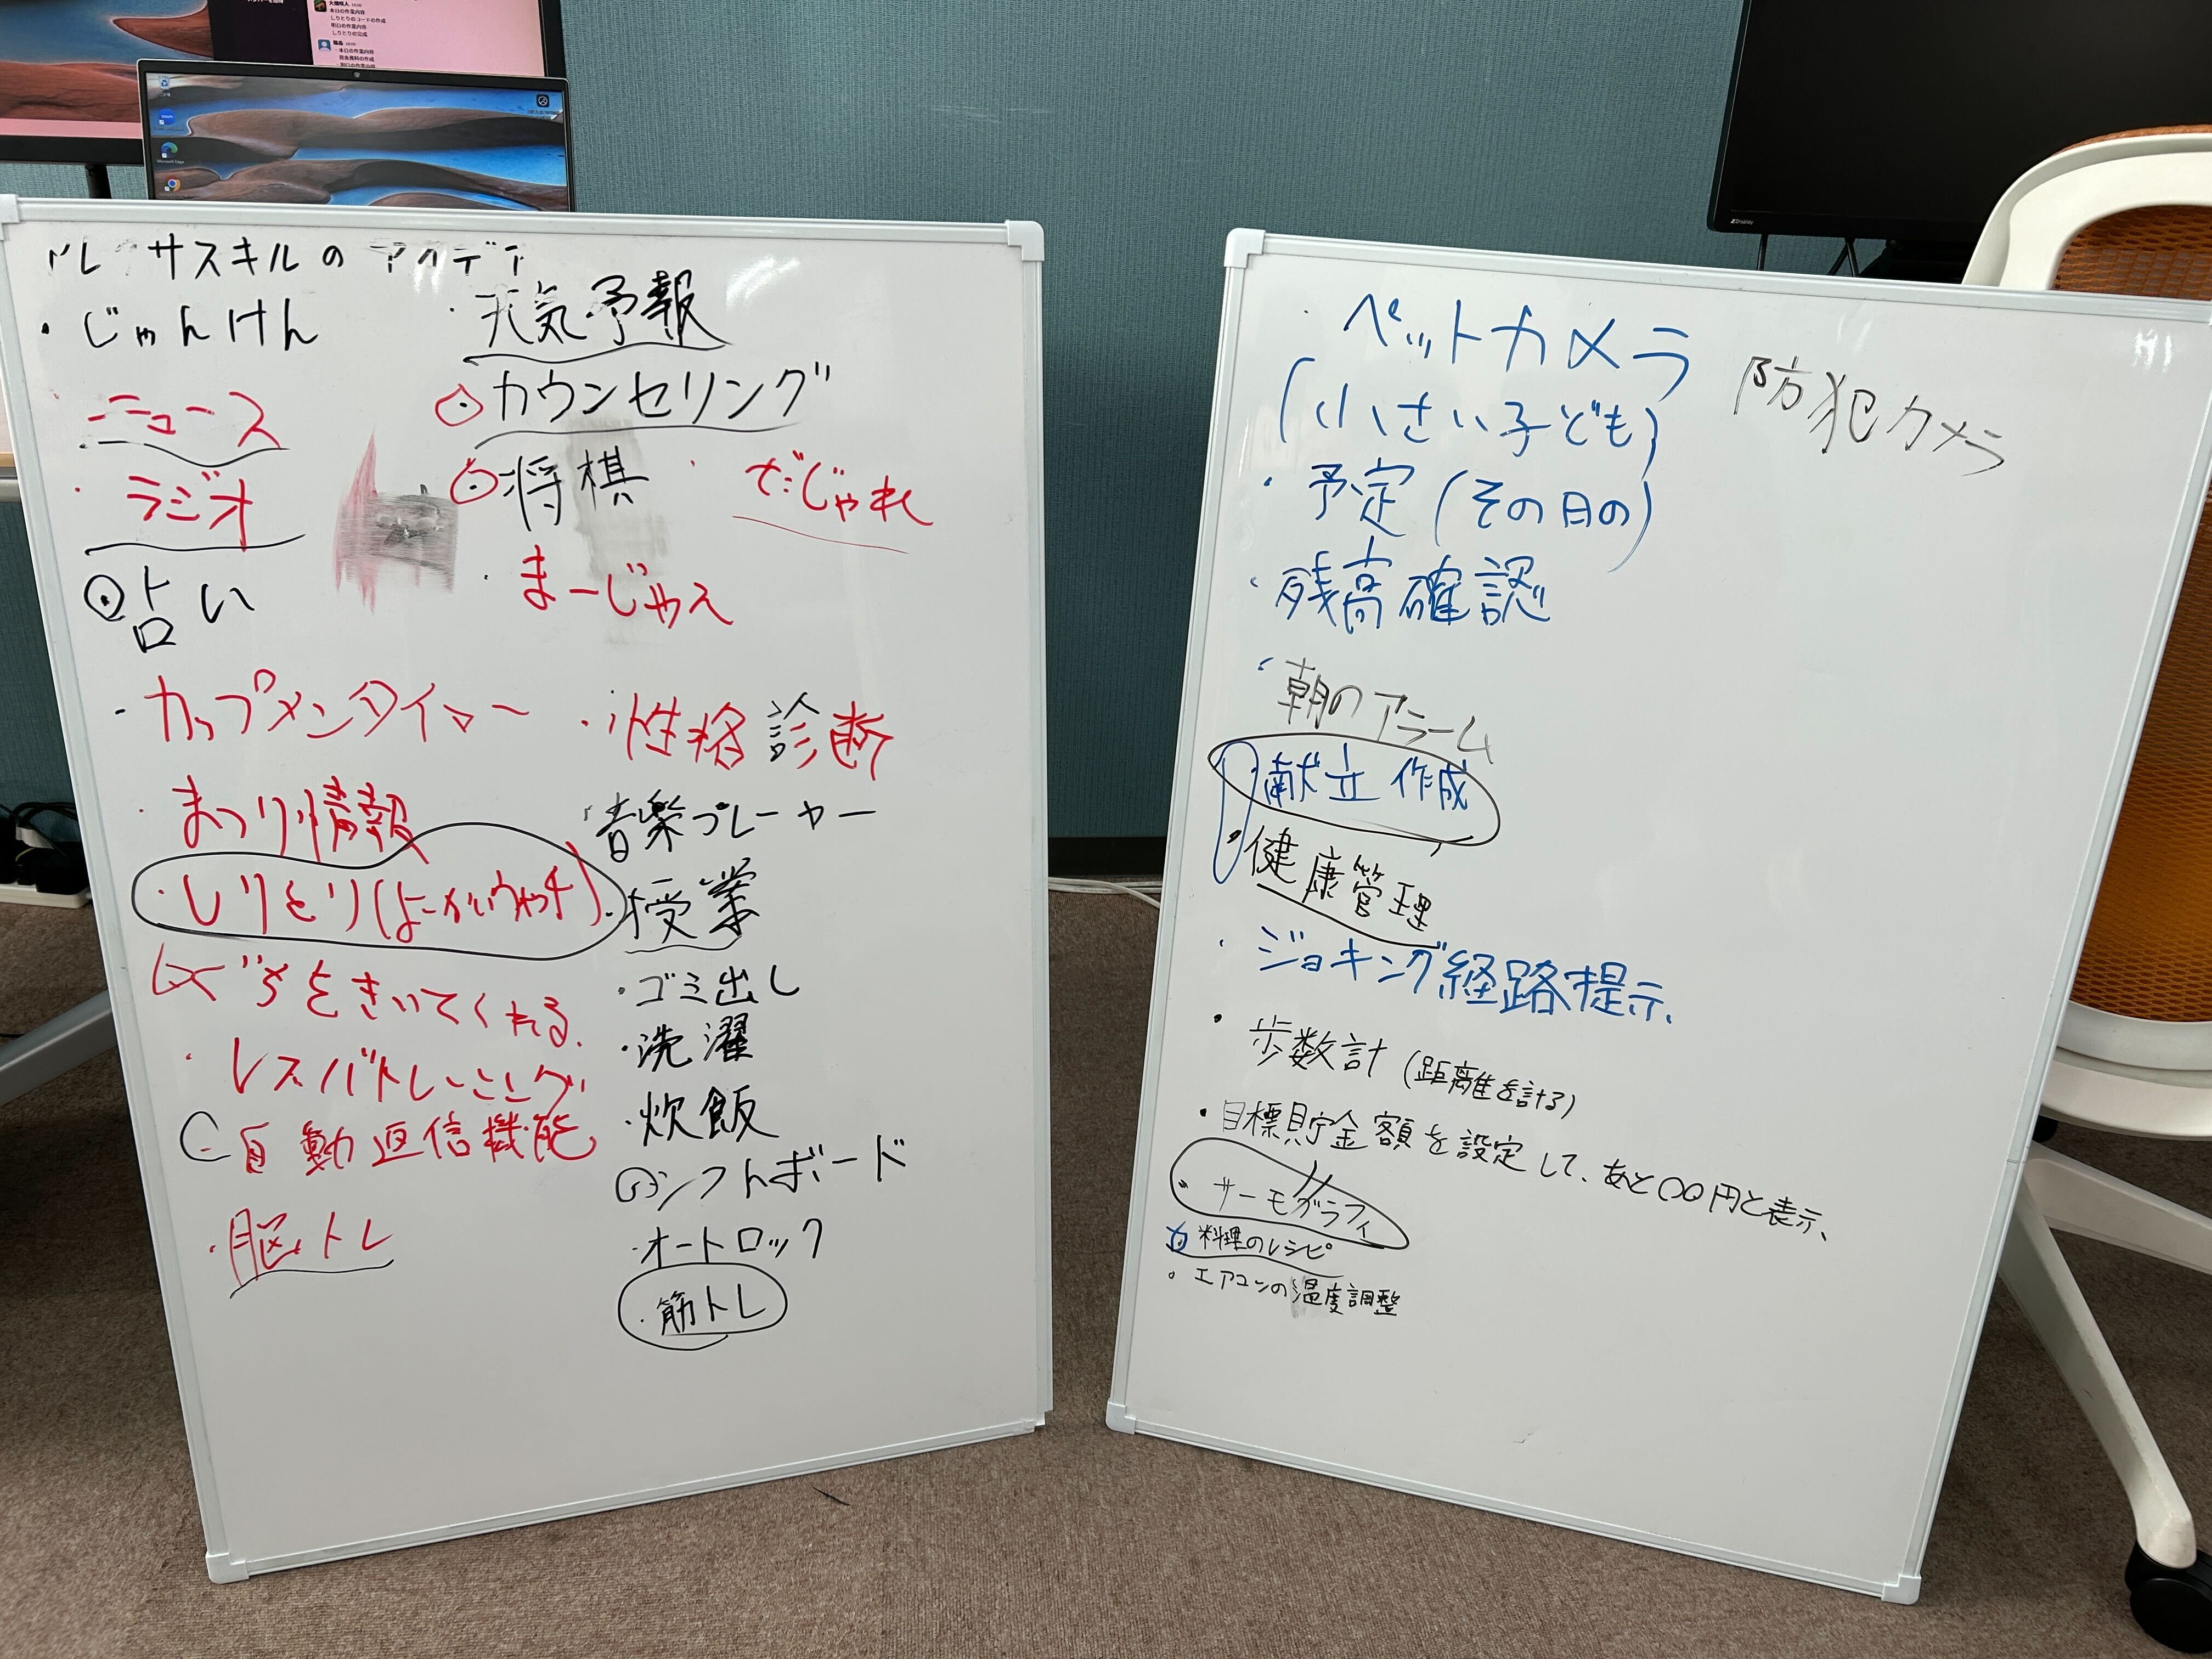 本日の作業内容
しりとりのコードの作成
明日の作業内容
しりとりの完成
本日の作業内容
Microsoft Edge
サスキルの アイデア
・じゃんけん
ニュース
・ラジオ
占い
・カップメンタイマー
・まつり情報
・しりとり(よーかいウォッチ)
・レスバトレーニング
自動返信機能
・脳トレ
・天気予報
カウンセリング
将棋
・だじゃれ
・まーじゃん
・性格診断
・音楽プレーヤー
・授業
・ゴミ出し
・洗濯
・炊飯
シフトボード
・オートロック
・筋トレ
・ペットカメラ
(小さい子ども)
防犯カメラ
・予定(その日の)
・残高確認
・朝のアラーム
献立作成
・健康管理
・ジョキング経路提示、
・歩数計(距離を計る)
・目標貯金額を設定して、あと〇〇円と表示、
・サーモグラフィ
料理のレシピ
・エアコンの温度調整
Display